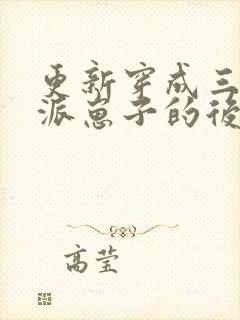 更新穿成三
派崽子的後
高莹